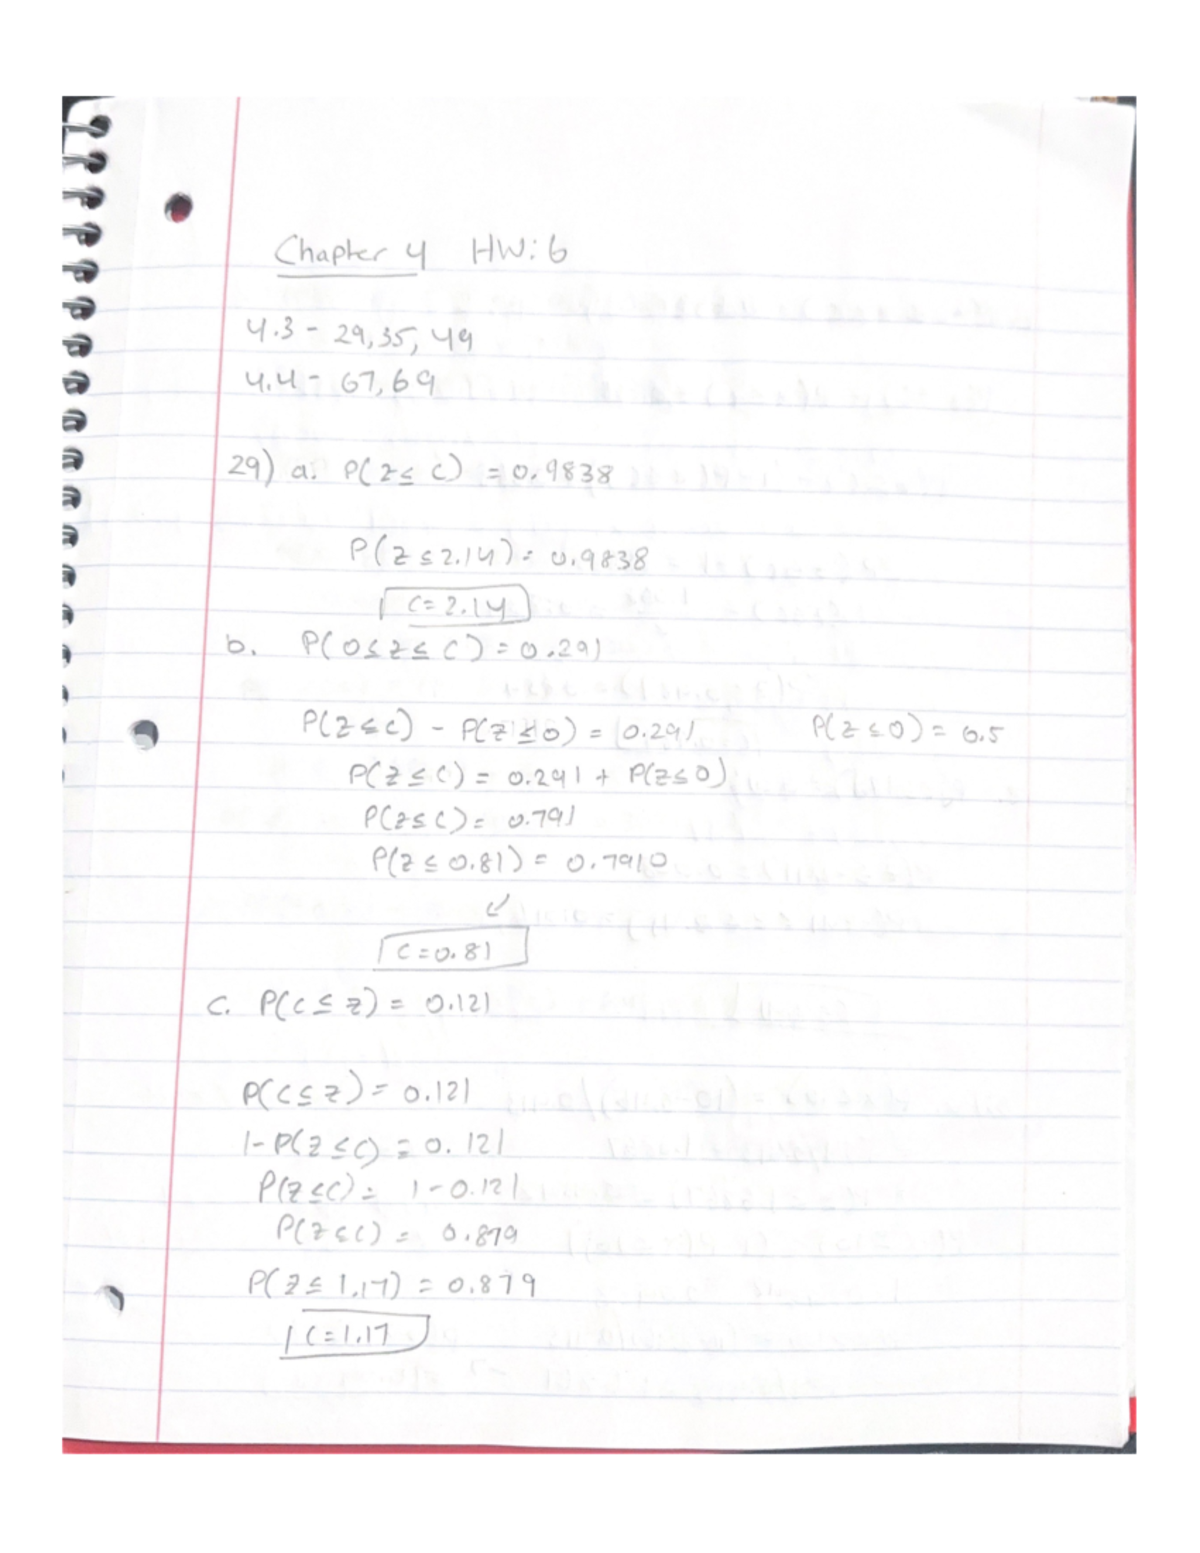 Chapter 4 HW: 6
4.3 - 29, 35, 49
4.4 - 67, 69
29) a. P(z ≤ c) = 0.9838
P(z ≤ 2.14) = 0.9838
c = 2.14
b. P(0 ≤ z ≤ c) = 0.291
P(z ≤ c) - P(z ≤ 0) = 0.291 P(z ≤ 0) = 0.5
P(z ≤ c) = 0.291 + P(z ≤ 0)
P(z ≤ c) = 0.791
P(z ≤ 0.81) = 0.7910
c = 0.81
c. P(c ≤ z) = 0.121
P(c ≤ z) = 0.121
1 - P(z ≤ c) = 0.121
P(z ≤ c) = 1 - 0.121
P(z ≤ c) = 0.879
P(z ≤ 1.17) = 0.879
c = 1.17